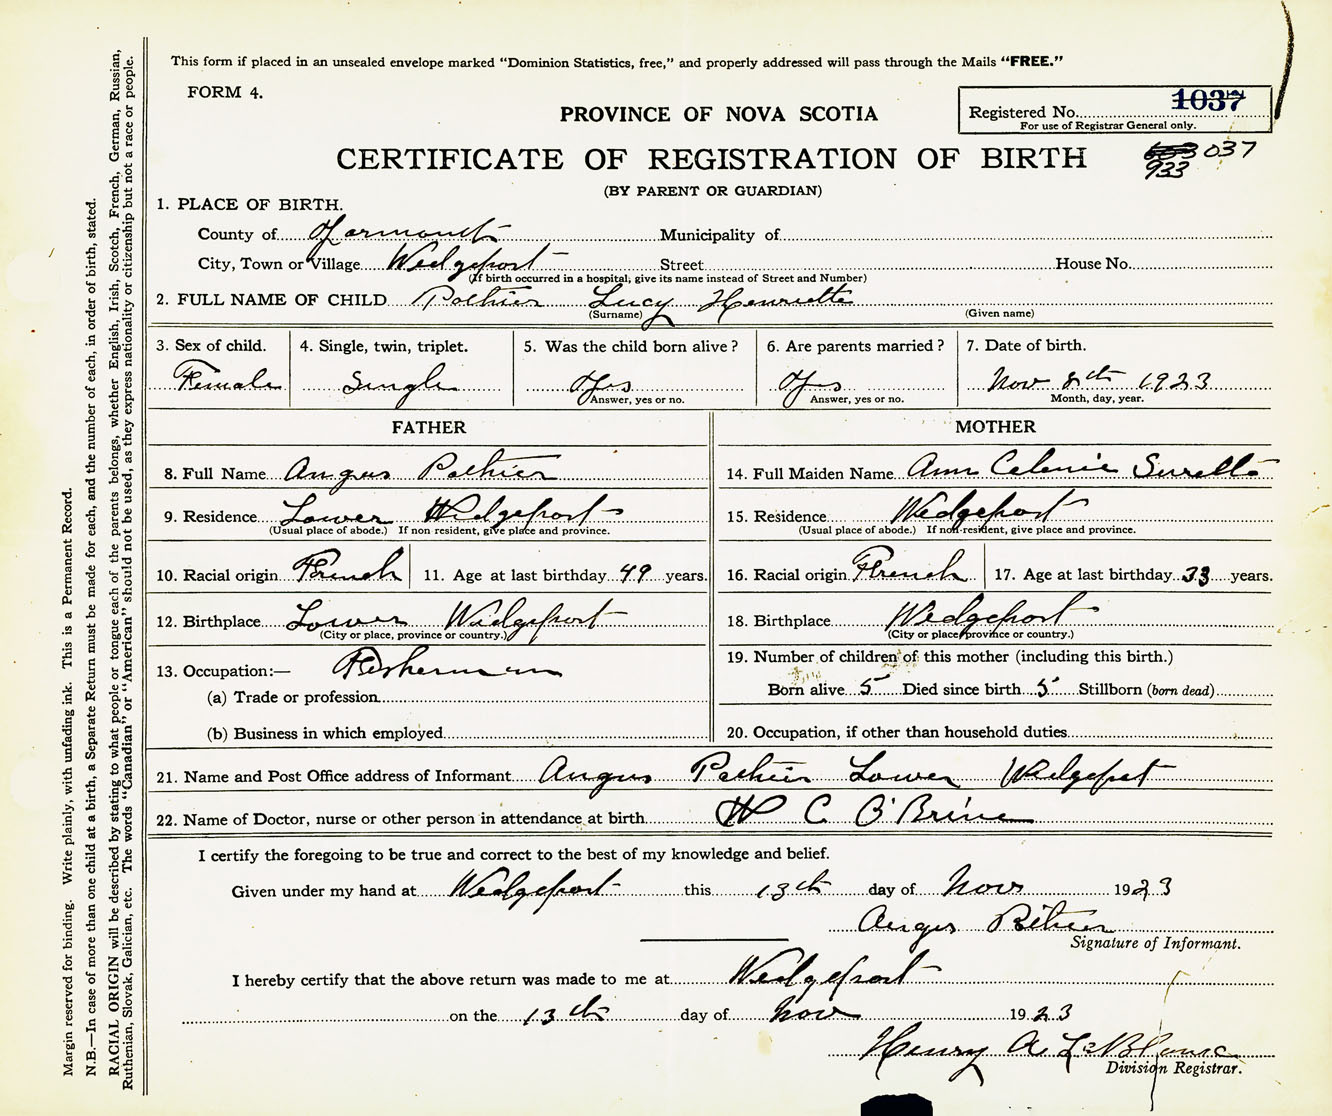 This form if placed in an unsealed envelope marked "Dominion Statistics, free," and properly addressed will pass through the Mails "FREE."
FORM 4.
PROVINCE OF NOVA SCOTIA
Registered No. 1037
For use of Registrar General only.
CERTIFICATE OF REGISTRATION OF BIRTH
037
933
(BY PARENT OR GUARDIAN)
1. PLACE OF BIRTH.
County of Yarmouth Municipality of
City, Town or Village Wedgeport Street House No.
(If birth occurred in a hospital, give its name instead of Street and Number)
2. FULL NAME OF CHILD Pothier Lucy Henriette
(Surname) (Given name)
3. Sex of child. 4. Single, twin, triplet. 5. Was the child born alive? 6. Are parents married? 7. Date of birth.
Female Single Yes Yes Nov 8th 1923
Answer, yes or no. Answer, yes or no. Month, day, year.
FATHER MOTHER
8. Full Name Angus Pothier 14. Full Maiden Name Ann Celenie Surette
9. Residence Lower Wedgeport 15. Residence Wedgeport
(Usual place of abode.) If non resident, give place and province. (Usual place of abode.) If non-resident, give place and province.
10. Racial origin French 11. Age at last birthday 49 years. 16. Racial origin French 17. Age at last birthday 33 years.
12. Birthplace Lower Wedgeport 18. Birthplace Wedgeport
(City or place, province or country.) (City or place, province or country.)
13. Occupation:— Fisherman 19. Number of children of this mother (including this birth.)
(a) Trade or profession Born alive 5 Died since birth 5 Stillborn (born dead)
(b) Business in which employed 20. Occupation, if other than household duties
21. Name and Post Office address of Informant Angus Pothier Lower Wedgeport
22. Name of Doctor, nurse or other person in attendance at birth W C O'Brine
I certify the foregoing to be true and correct to the best of my knowledge and belief.
Given under my hand at Wedgeport this 13th day of Nov 1923
Angus Pothier
Signature of Informant.
I hereby certify that the above return was made to me at Wedgeport
on the 13th day of Nov 1923
Henry A LeBlanc
Division Registrar.
Margin reserved for binding. Write plainly, with unfading ink. This is a Permanent Record.
N.B.—In case of more than one child at a birth, a Separate Return must be made for each, and the number of each, in order of birth, stated.
RACIAL ORIGIN will be described by stating to what people or tongue each of the parents belongs, whether English, Irish, Scotch, French, German, Russian,
Ruthenian, Slovak, Galician, etc. The words "Canadian" or "American" should not be used, as they express nationality or citizenship but not a race or people.